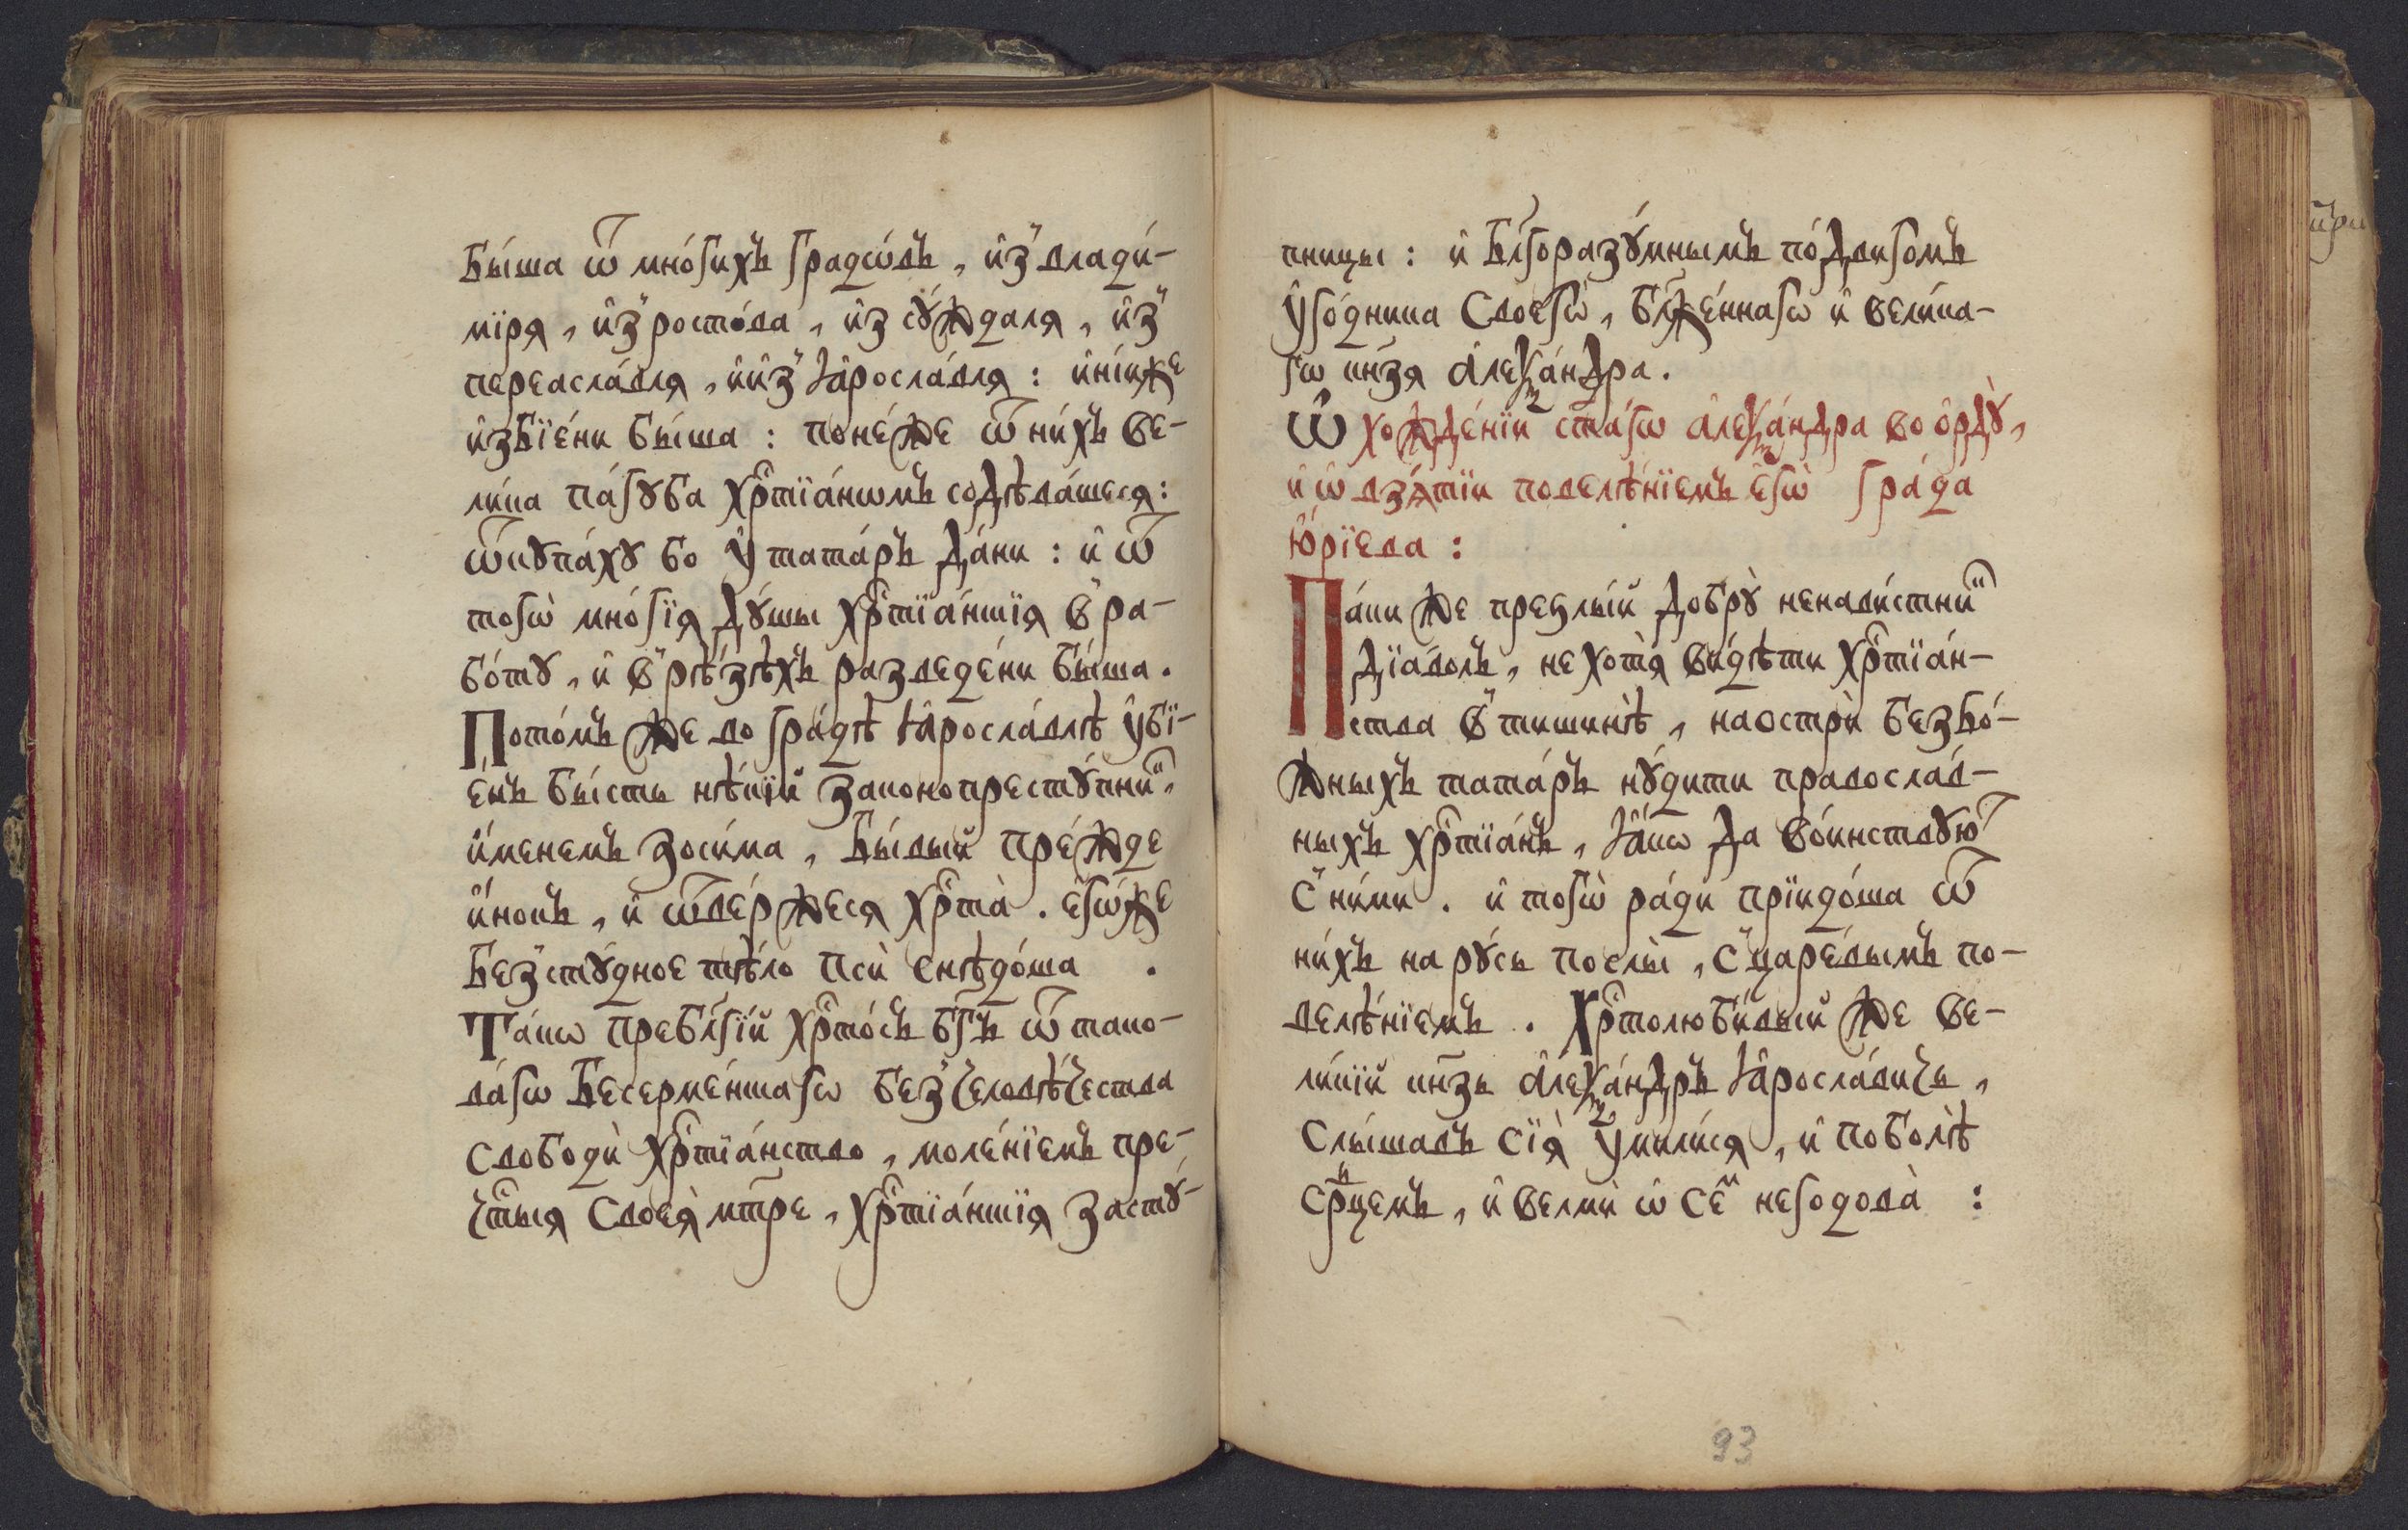 бы́ша ѿ мно́гихъ градѡ́въ, и҆з̾ влади́-
мїря, и҆з̾ росто́ва, и҆з сꙋ́ждаля, и҆з̾
переасла́вля, и҆ и҆з̾ ꙗ҆росла́вля: и҆ні́иже
и҆збїе́ни бы́ша: поне́же ѿ ни́хъ ве-
ли́ка па́гꙋба хрⷭ҇тїа́нѡмъ содѣ́вашеся:
ѿкꙋпа́хꙋ бо ᲂу҆ тата́ръ да́ни: и҆ ѿ
тогѡ̀ мно́гїя дꙋ́шы хрⷭ҇тїа́нскїя в̾ ра-
бо́тꙋ, и҆ в̾ рѣ́зѣхъ разведе́ни бы́ша.
Пото́мъ же во гра́дѣ ꙗ҆росла́влѣ ᲂу҆бї-
е́нъ бы́сть нѣ́кїй законопрестꙋ́пникъ,
и҆́менемъ зоси́ма, бы́вый пре́жде
и҆́нокъ, и҆ ѿве́ржеся хрⷭ҇та̀. є҆гѡ́же
без̾стꙋ́дное тѣ́ло псѝ снѣдо́ша.
Та́кѡ пребл҃гі́й хрⷭ҇то́съ бг҃ъ ѿ тако-
ва́гѡ бесерме́нскагѡ без̾человѣ́чества
свободѝ хрⷭ҇тїа́нство, моле́нїемъ пре-
чⷭ҇тыя своея̀ мт҃ре, хрⷭ҇тїа́нскїя застꙋ́-
пницы: и҆ бл҃горазꙋ́мнымъ по́двигомъ
ᲂу҆го́дника своегѡ̀, бл҃же́ннагѡ и҆ вели́ка-
гѡ кн҃зя а҆леѯа́ндра.
Ѽ хожде́нїи ст҃а́гѡ а҆леѯа́ндра во ѻ҆рдꙋ̀,
и҆ ѡ҆ взя́тїи повелѣ́нїемъ є҆гѡ̀ гра́да
ю҆́рїева:
Па́ки же преѕлы́й добрꙋ̀ ненави́стникъ
дїа́волъ, не хотя̀ ви́дѣти хрⷭ҇тїа́н-
ства в̾ тишинѣ̀, наострѝ безбо́-
жныхъ тата́ръ нꙋ́дити правосла́в-
ныхъ хрⷭ҇тїа́нъ, ꙗ҆́кѡ да во́инствꙋютъ
с̾ ни́ми. и҆ тогѡ̀ ра́ди прїидо́ша ѿ
ни́хъ на рꙋ́сь послы̀, с̾ царе́вымъ по-
велѣ́нїемъ. Хрⷭ҇толюби́вый же ве-
ли́кїй кн҃зь а҆леѯа́ндръ ꙗ҆росла́вичь,
слы́шавъ сїя̀ ᲂу҆мили́ся, и҆ поболѣ̀
срⷣцемъ, и҆ велмѝ ѡ҆ се́мъ негодова̀:
93